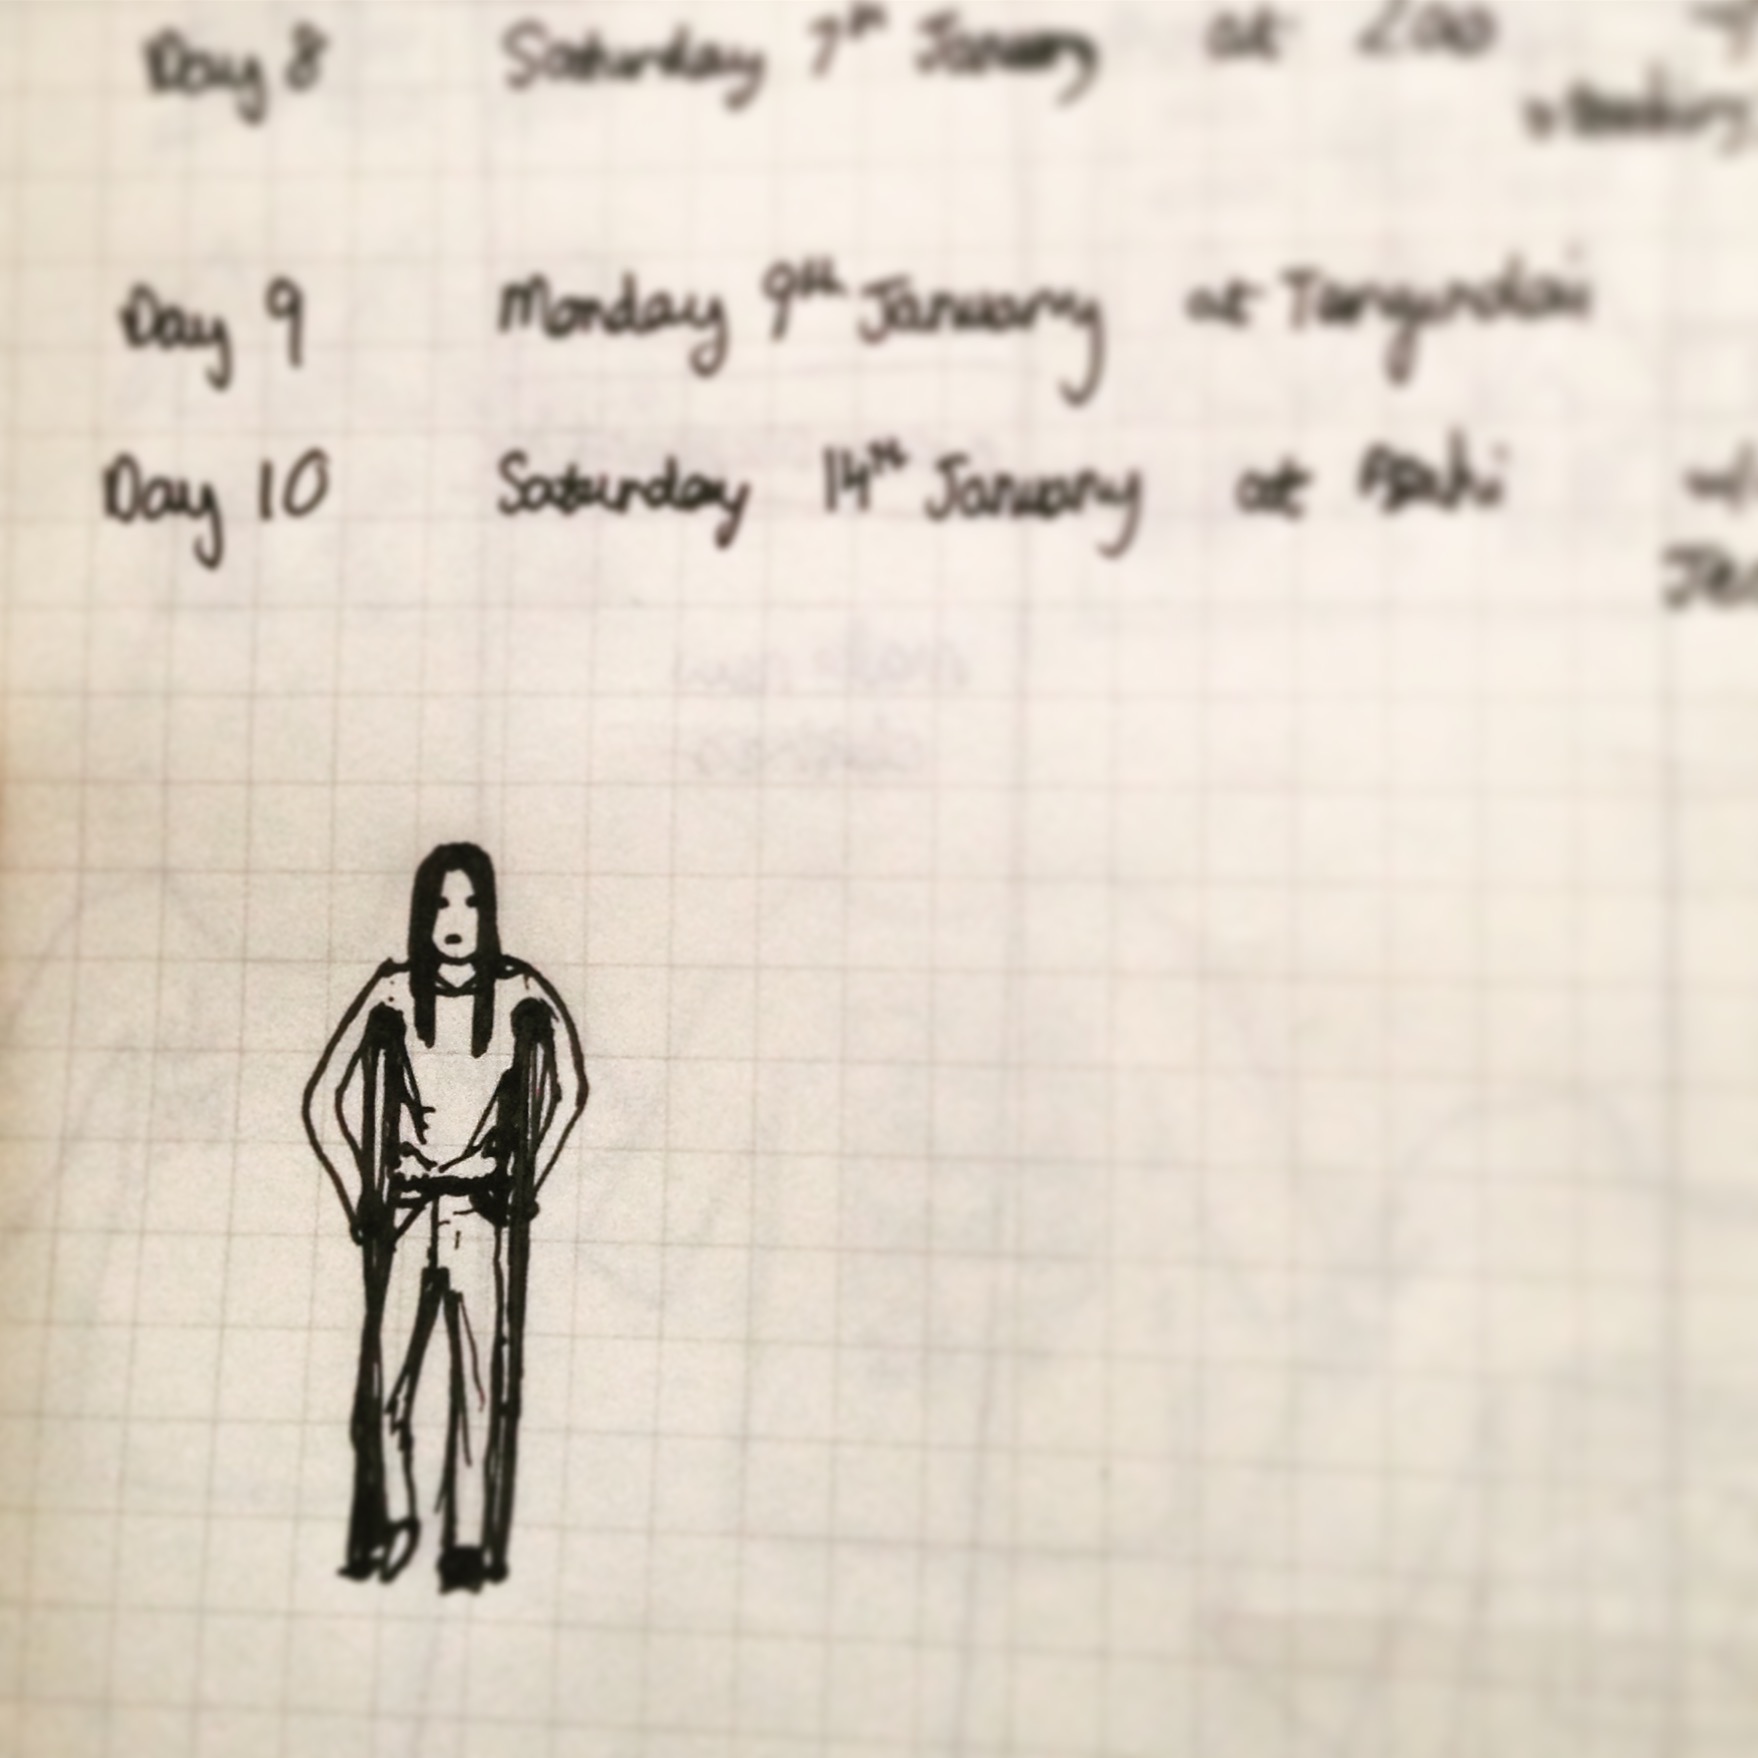 Day 8 Saturday 7th January at Zao
Day 9 Monday 9th January at Tangindai
Day 10 Saturday 14th January at Asahi w/